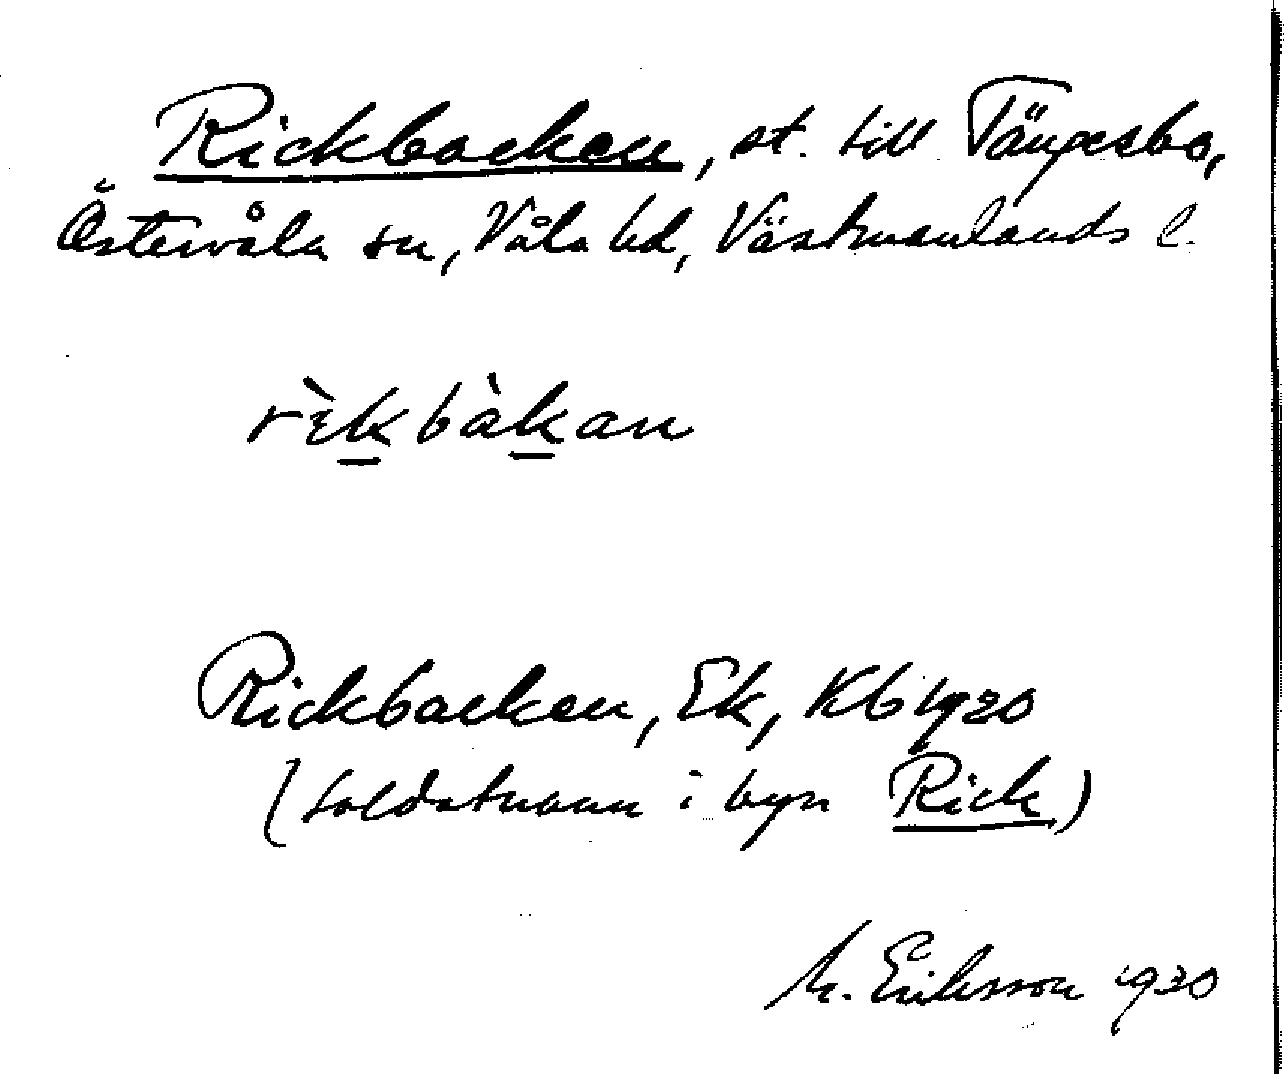 Rickbacken, st. till Tängesbo,
Östervåla sn, Våla hd, Västmanlands l.
rìkbàkan
Rickbacken, Ek, Kb 1930
(soldatnamn i byn Rick)
M. Eriksson 1930